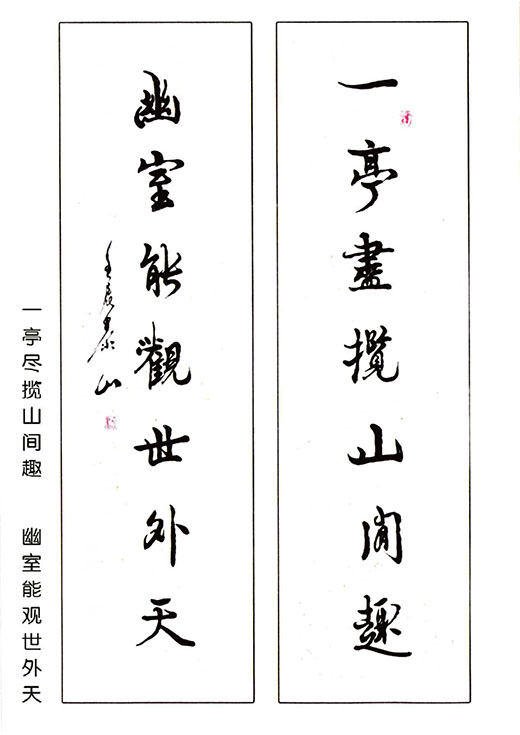 一亭盡攬山間趣
幽室能觀世外天
一亭尽揽山间趣 幽室能观世外天